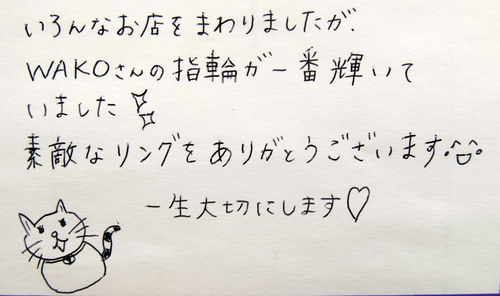 いろんなお店をまわりましたが、
WAKOさんの指輪が一番輝いて
いました
素敵なリングをありがとうございます
一生大切にします♡